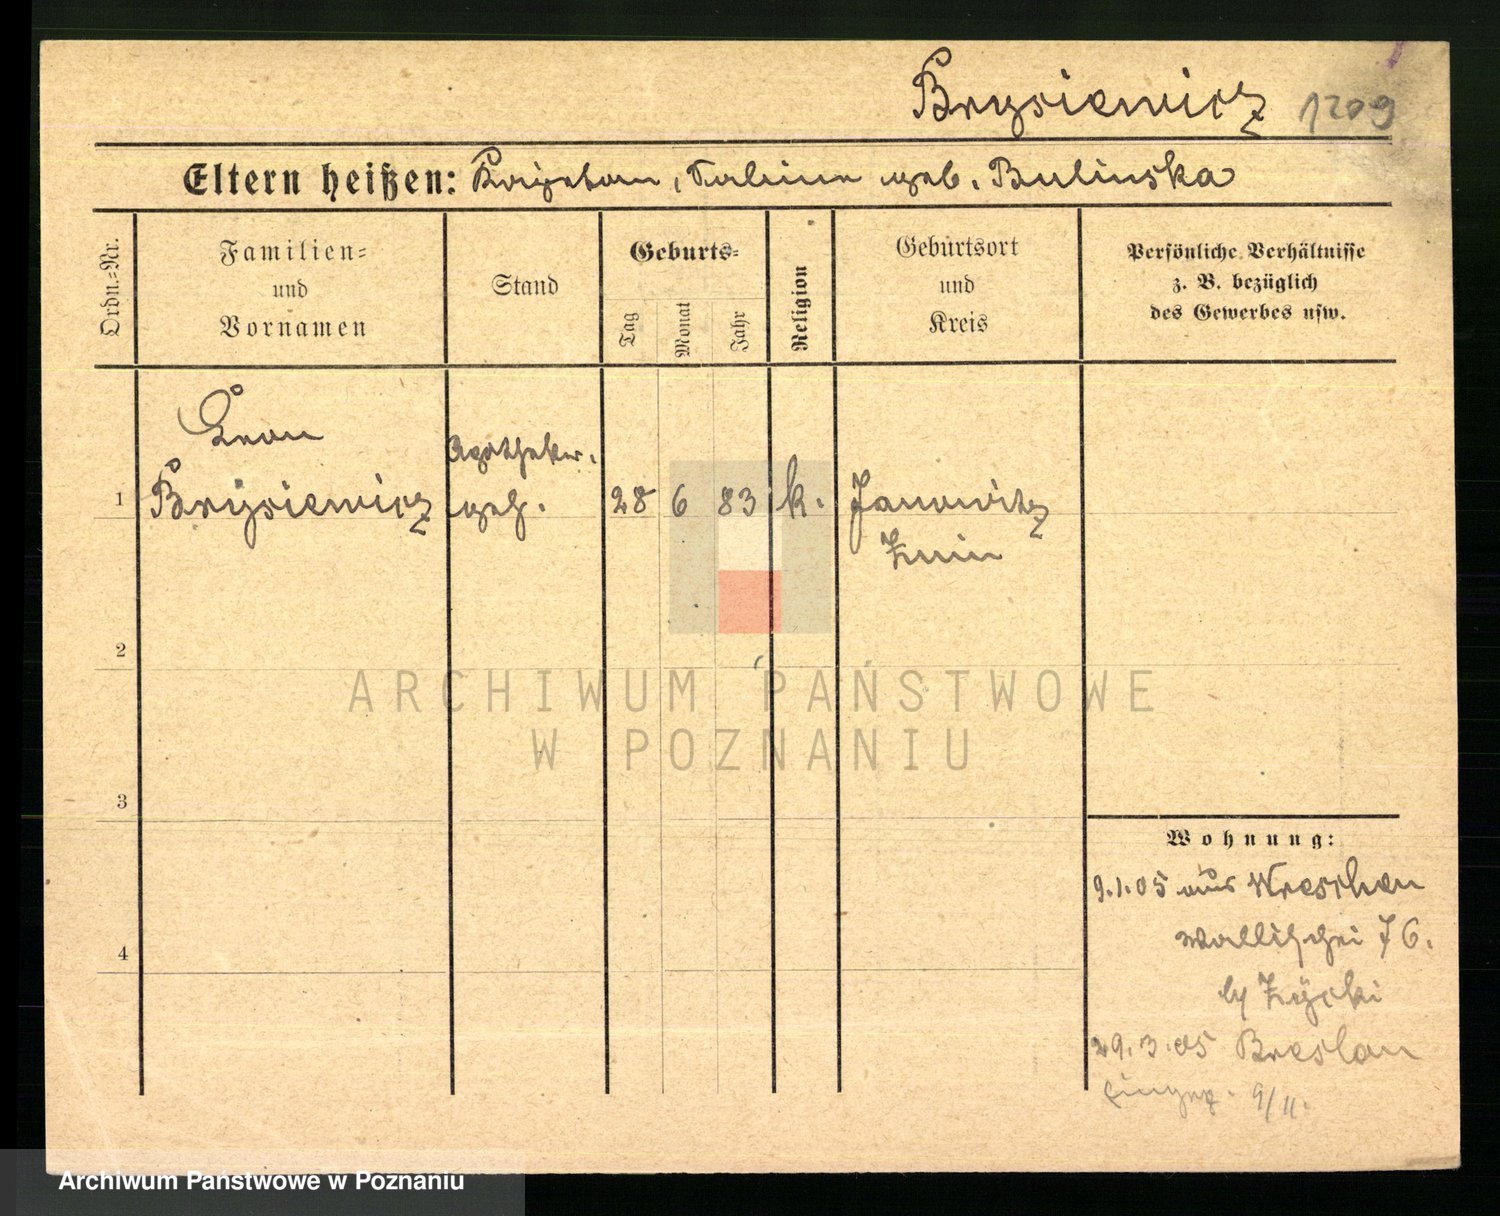 Brysiewicz 1209
Eltern heißen: Kajetan, geb. Bulinska
Ordn.=Nr.
Familien=
und
Vornamen
Stand
Geburts=
Tag
Monat
Jahr
Religion
Geburtsort
und
Kreis
Persönliche Verhältnisse
z. B. bezüglich
des Gewerbes usw.
Leon
Apotheker.
1 Brysiewicz geh. 28 6 83 k. Janowitz
Znin
2
ARCHIWUM PAŃSTWOWE
W POZNANIU
3
Wohnung:
9.1.05 aus Wreschen
Wallischei 76.
4
b/ Zycki
29.3.05 Breslau
9/11.
Archiwum Państwowe w Poznaniu